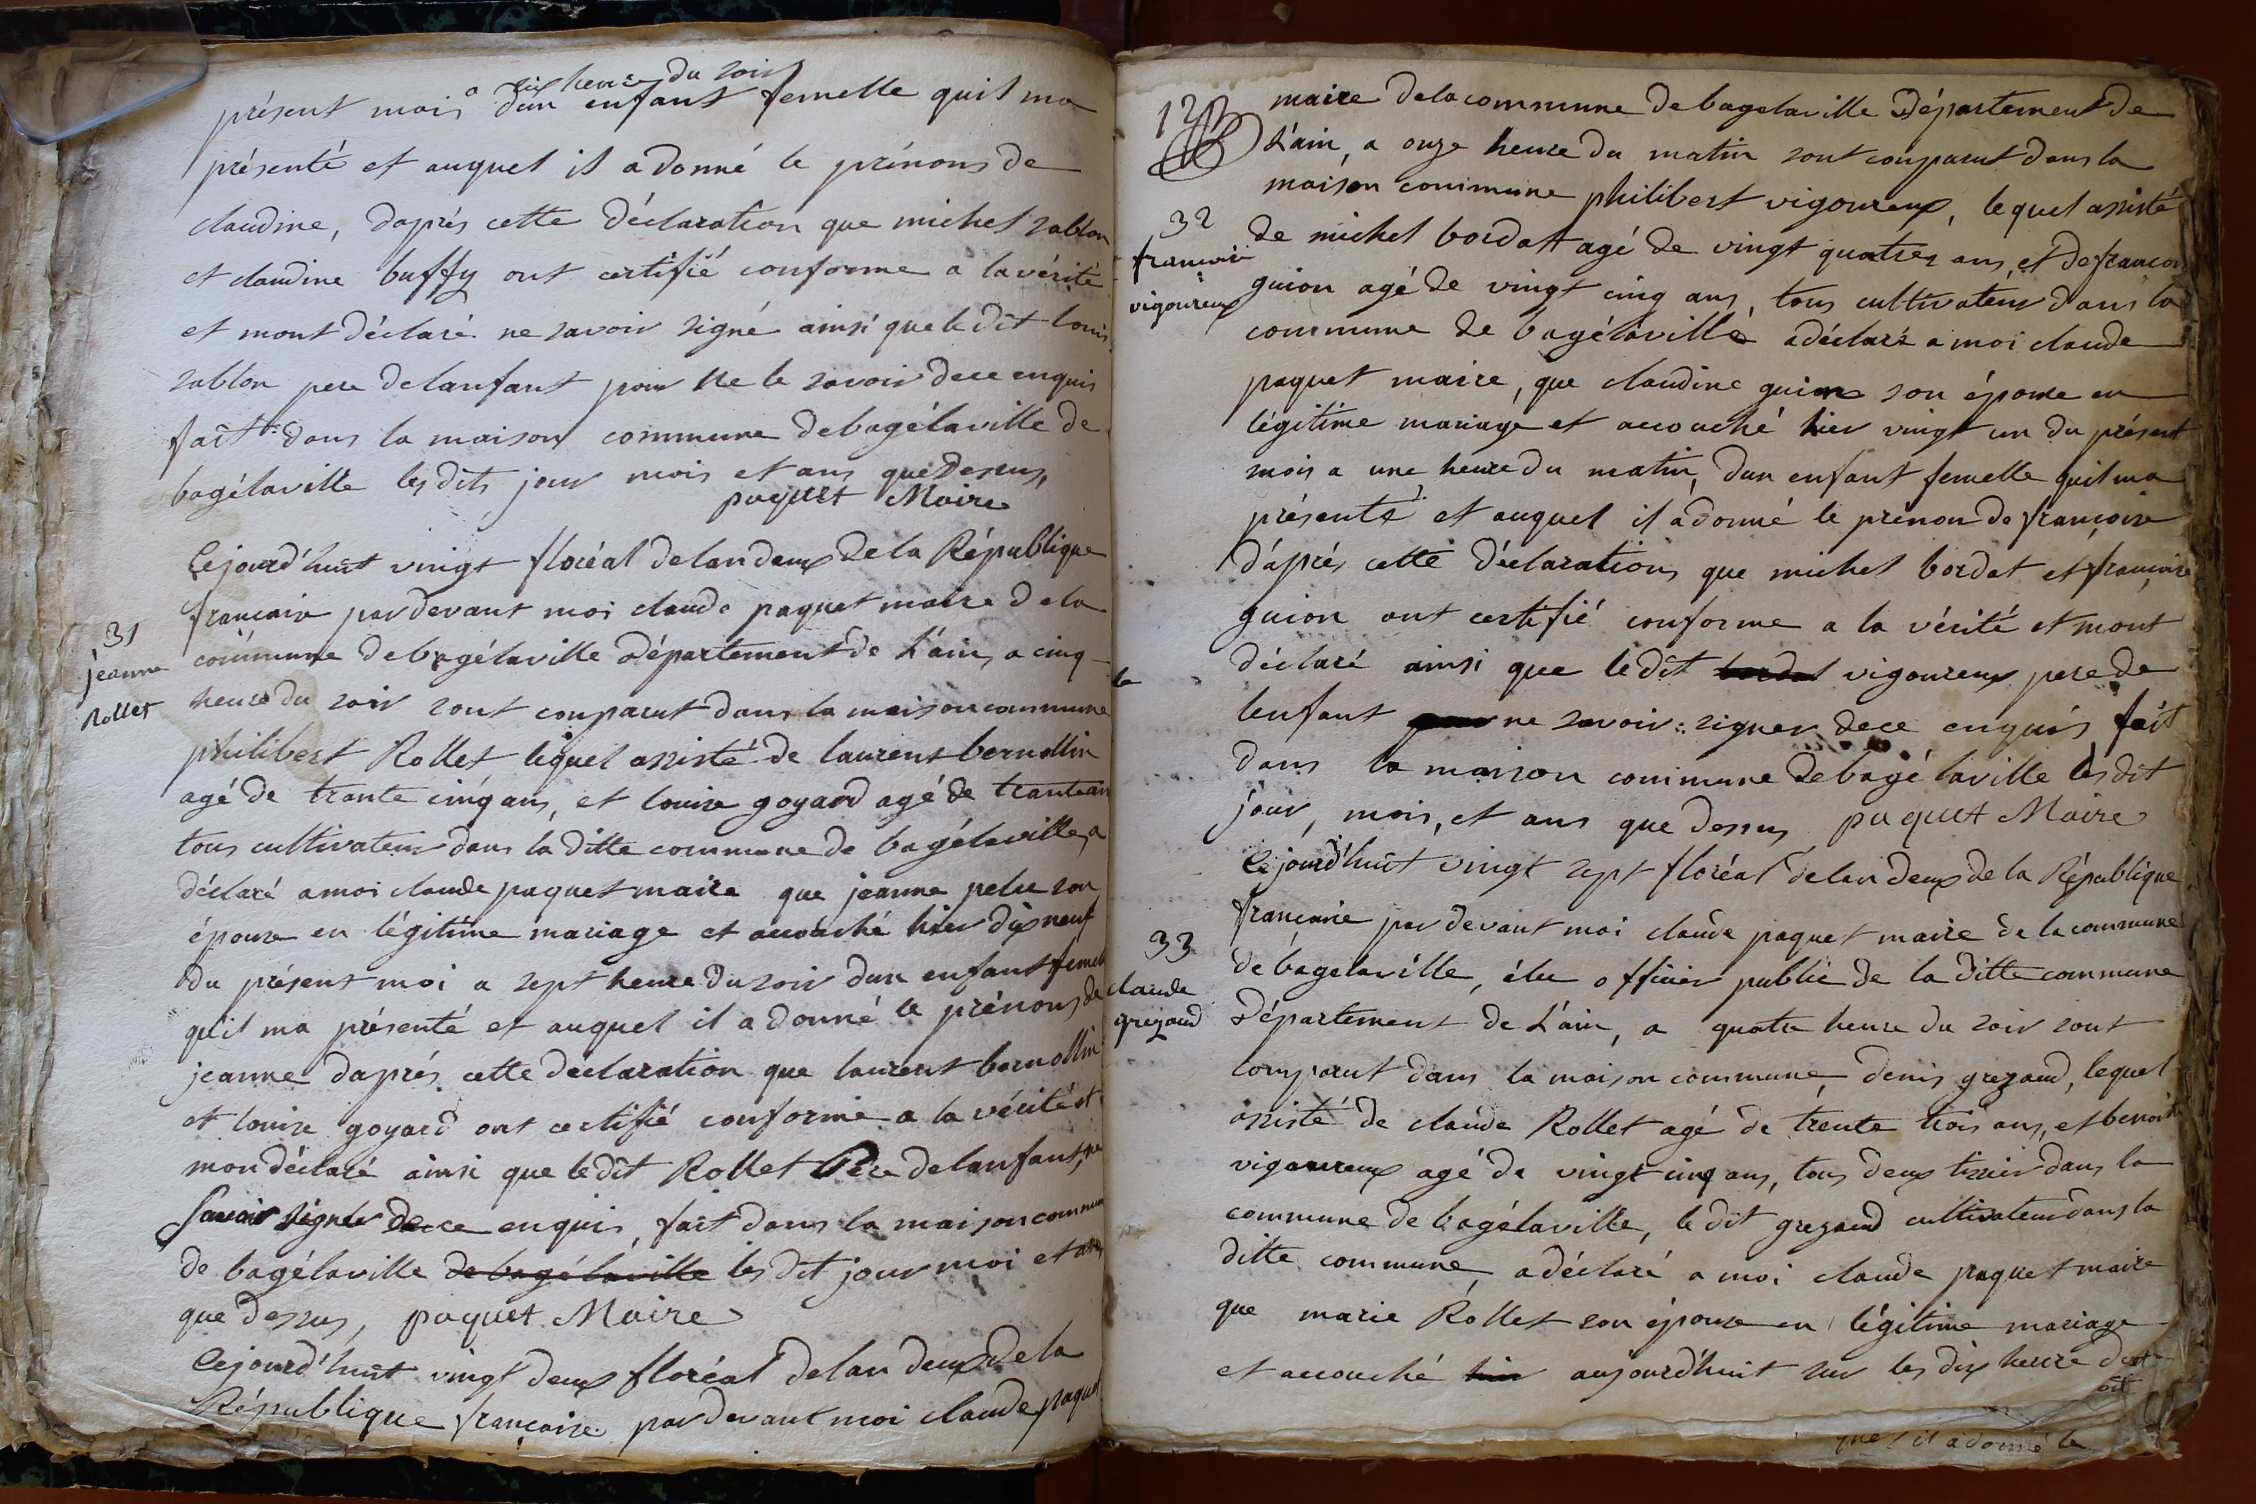 a dix heure du soir
présent mois dun enfant femelle quil ma
présenté et auquel il a donné le prénons de
claudine, daprés cette déclaration que michel sablon
et claudine buffy ont certifié conforme a la vérité
et mont déclaré ne savoir signé ainsi que le dit louis
sablon pere de lanfant pour ne le savoir de ce enquis
fait dans la maison commune de bagélaville de
bagélaville les dits jour mois et ans que dessus,
paquet Maire
Cejourd'huit vingt floréal de lan deux de la République
francaise pardevant moi claude paquet maire de la
31
commune de bagélaville département de L'ain, a cinq
jeanne
Rollet
heure du soir sont comparut dans la maison commune
philibert Rollet lequel assisté de laurent bernollin
agé de trante cinq ans, et louise goyard agé de trante ans
tous cultivateur dans la ditte commune de bagélaville, a
déclaré a moi claude paquet maire que jeanne pelu son
épouse en légitime mariage et accouché hier dix neuf
du présent moi a sept heure du soir dun enfant femel
quil ma présenté et auquel il a donné le prénons de
jeanne daprés cette déclaration que laurent bernollin
et louise goyard ont certifié conforme a la vérité et
mon déclaré ainsi que le dit Rollet Pere de lanfant, ne
savoir signer de ce enquis, fait dans la maison commune
de bagélaville de bagélaville les dit jour moi et ans
que dessus, paquet Maire
Cejourd'huit vingt deux floréal de lan deux de la
République francaise pardevant moi claude paquet
12
maire de la commune de bagelaville Département de
L'ain, a onze heure du matin sont comparut dans la
maison commune philibert vigoureux, le quel assisté
32
francoise
vigoureux
de michel bordat agé de vingt quatres ans, et de francois
guion agé de vingt cinq ans, tous cultivateur dans la
commune de bagélaville a déclaré a moi claude
paquet maire, que claudine guion son épouse en
légitime mariage et accouché hier vingt un du présent
mois a une heure du matin, dun enfant femelle quil ma
présenté et auquel il a donné le prénon de françoise
d'aprés cette déclaration que michel bordat et françoise
guion ont certifié conforme a la vérité et mont
déclaré ainsi que le dit bordat vigoureux pere de
le
lenfant pour ne savoir signer de ce enquis fait
dans la maison commune de bagé laville les dit
jour, mois, et ans que dessus paquet Maire
Cejourd'huit vingt sept floréal de lan deux de la République
françaisie par devant moi claude paquet maire de la commune
33
claude
grezaud
de bagelaville, élu officier public de la ditte commune
Département de L'ain, a quatre heure du soir sont
comparut dans la maison commune, denis grezaud, lequel
assisté de claude Rollet agé de trente trois ans, et benoit
vigoureux agé de vingt cinq ans, tous deux tissier dans la
commune de bagélaville, le dit grezaud cultivateur dans la
ditte commune, a déclaré a moi claude paquet maire
que marie Rollet son épouse en légitime mariage
et accouché hier aujourd'huit sur les dix heure
quel il a donné le